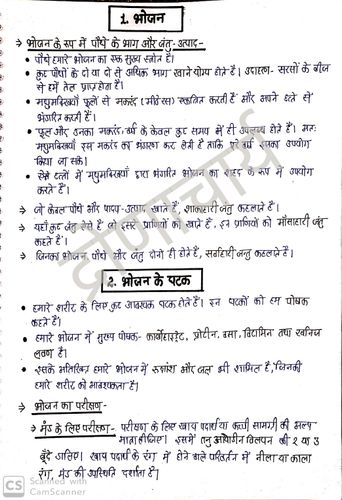 1. भोजन
→ भोजन के रूप में पौधे के भाग और जंतु-उत्पाद-
• पौधे हमारे भोजन का एक मुख्य स्त्रोत है।
• कुछ पौधों के दो या दो से अधिक भाग खाने योग्य होते हैं। उदाहरण- सरसों के बीज
से हमें तेल प्राप्त होता है।
• मधुमक्खियाँ फूलों से मकरंद (मीठेरस) एकत्रित करती हैं और अपने छत्ते से
भंडारित करती हैं।
• फूल और उनका मकरंद, वर्ष के केवल कुछ समय में ही उपलब्ध होते हैं। अतः
मधुमक्खियाँ इस मकरंद का भंडारण कर लेती हैं ताकि पूरे वर्ष इसका उपयोग
किया जा सके।
• ऐसे छत्तों में मधुमक्खियों द्वारा भंडारित भोजन का शहद के रूप में उपयोग
करते हैं।
→ जो केवल पौधे और पादप-उत्पाद खाते हैं, शाकाहारी जंतु कहलाते हैं।
→ यहाँ कुछ जंतु ऐसे हैं जो दूसरे प्राणियों को खाते हैं, इन प्राणियों को माँसाहारी जंतु
कहते हैं।
→ जिनका भोजन, पौधे और जंतु दोनों ही होते हैं, सर्वाहारी जन्तु कहलाते हैं।
द्रोणाचार्य
2. भोजन के घटक
• हमारे शरीर के लिए कुछ आवश्यक घटक होते हैं। इन घटकों को हम पोषक
कहते हैं।
• हमारे भोजन में मुख्य पोषक- कार्बोहाइड्रेट, प्रोटीन, वसा, विटामिन तथा खनिज
लवण हैं।
• इसके अतिरिक्त हमारे भोजन में रूक्षांश और जल भी शामिल हैं, जिनकी
हमारे शरीर को आवश्यकता है।
→ भोजन का परीक्षण-
→ मंड के लिए परीक्षण- परीक्षण के लिए खाद्य पदार्थ या कच्ची सामग्री की अल्प
मात्रा लीजिए। इसमें तनु आयोडीन विलयन की 2 या 3
बूँदें डालिए। खाद्य पदार्थ के रंग में होने वाले परिवर्तन में नीला या काला
रंग, मंड की उपस्थिति दर्शाता है।
CS Scanned with
CamScanner